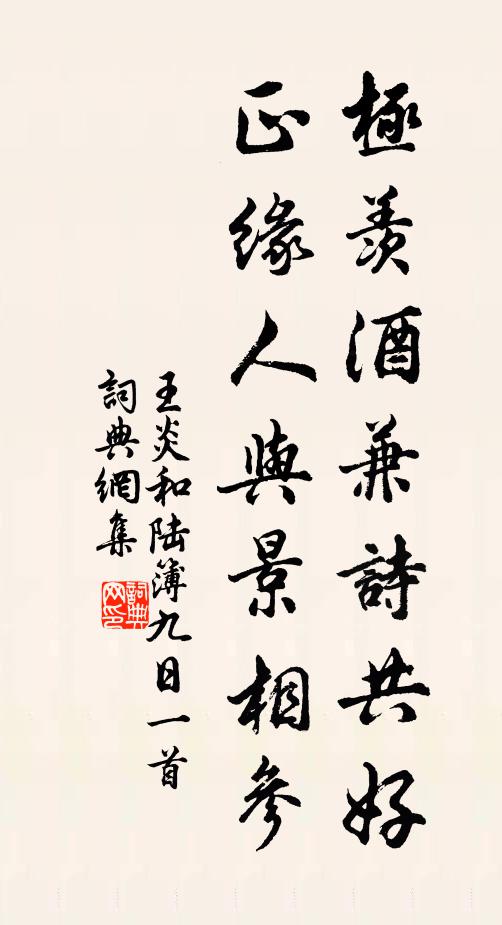 極羨酒兼詩共好
正緣人與景相參
王炎和陆簿九日一首
詞典網集
詞典网印